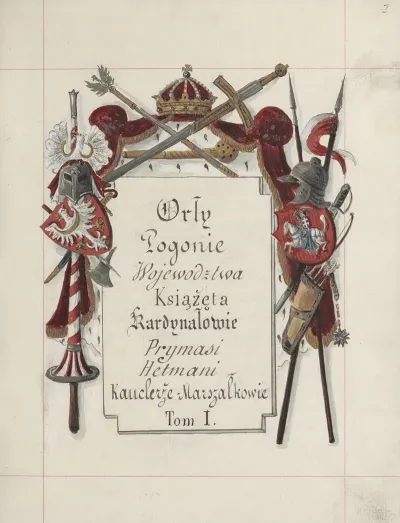 2
Orły
Pogonie
Województwa
Książęta
Kardynałowie
Prymasi
Hetmani
Kanclerze Marszałkowie
Tom I.